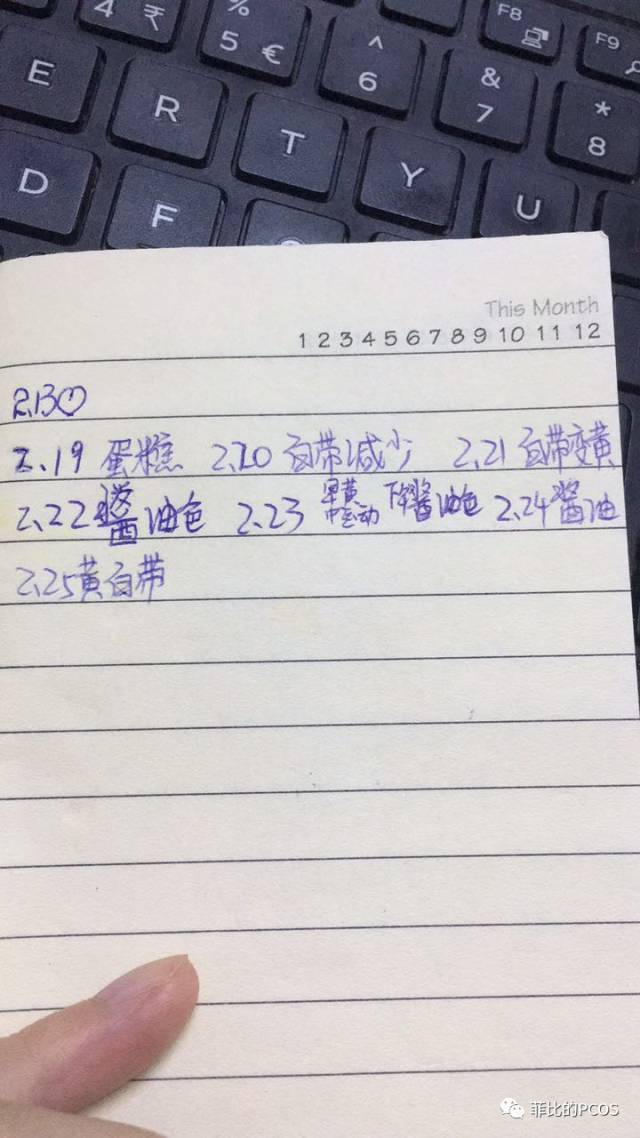 4 ₹
% 5 €
^ 6
& 7
* 8
F8
F9
E R T Y U
D F
This Month
1 2 3 4 5 6 7 8 9 10 11 12
2.13♡
2.19 蛋糕 2.20 白带减少 2.21 白带变黄
2.22 酱油色 2.23 早黄 中运动 下午酱油色 2.24 酱油
2.25黄白带
菲比的PCOS